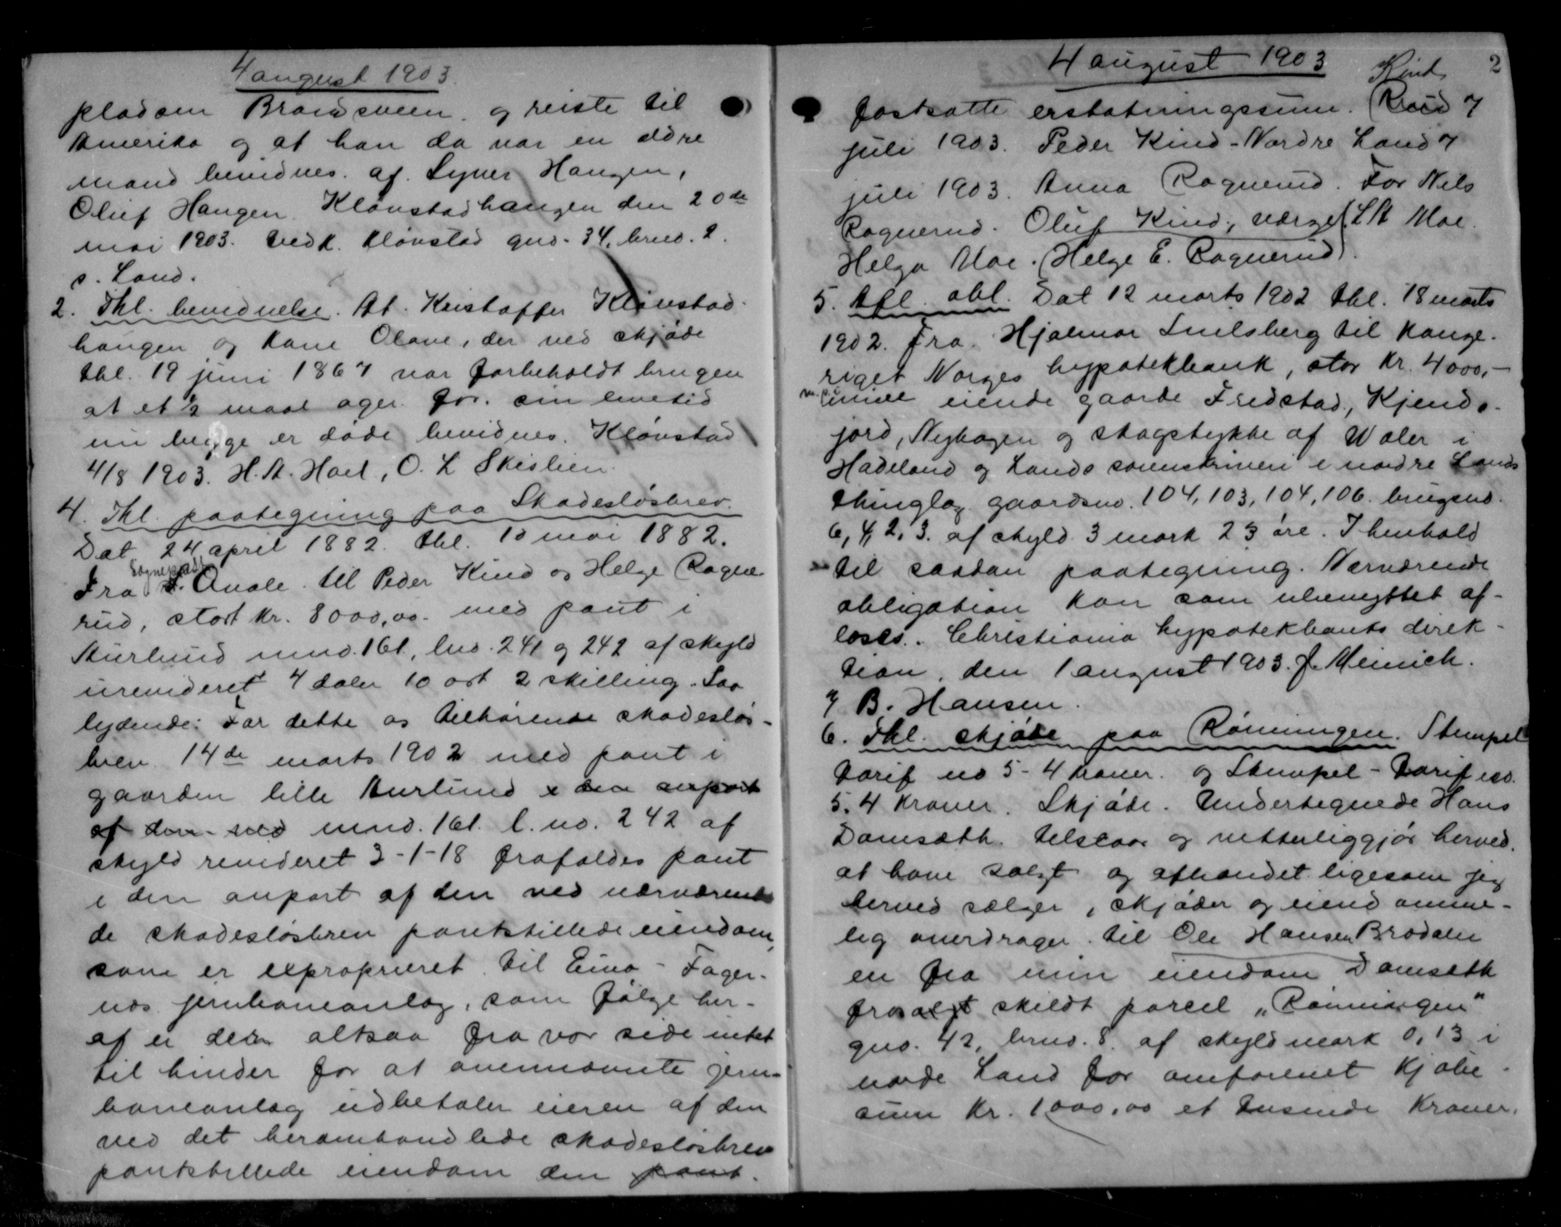 4 august 1903.
pladsen Brandsveen og reiste til
Amerika og at han da var en ældre
mand bevidnes af Syver Haugen,
Oluf Haugen. Kløvstadhaugen den 20de
mai 1903. Vedk. Kløvstad gno. 34, brno. 2.
s. Land.
2. Thl. bevidnelse. At Kristoffer Kløvstad-
haugen og kone Olave, der ved skjøde
thl. 19 juni 1867 var forbeholdt brugen
at et ½ maal ager for sin levetid
nu begge er døde bevidnes. Kløvstad
4/8 1903. H. A. Hoel, O. L. Skislien.
4. Thl. paategning paa Skadesløsbrev.
Dat 24 april 1882. thl. 10 mai 1882.
Fra Sogneprest Qvale til Peder Kind og Helge Rogne-
rud, stort kr. 8000,00 med pant i
Aurlund mno. 161, lno. 241 og 242 af skyld
urevideret 4 daler 10 ort 2 skilling. Saa
lydende: For dette os tilhørende skadesløs-
brev 14de marts 1902 med pant i
gaarden lille Aurlund x den anpart
af den ved mno. 161. l. no. 242 af
skyld revideret 3-1-18 frafaldes pant
i den anpart af den ved nærværent
de skadesløsbrev pantstillede eiendom,
som er exproprieret til Eina-Fager-
næs jernbaneanlæg, som følge her-
af er der altsaa fra vor side intet
til hinder for at ovennævnte jern-
baneanlæg udbetaler eieren af den
ved det heromhandlede skadesløsbrev
pantstillede eiendom den pant.
4 august 1903
2
Kind
fastsatte erstatningssum. Kind 7
juli 1903. Peder Kind - Nordre Land 7
juli 1903. Anna Rognerud. For Nels
Rognerud. Oluf Kind, værge (L A Moe.
Helga Moe. (Helge E. Rognerud).
5. Afl. obl. Dat 12 marts 1902 thl. 18 marts
1902. Fra Hjalmar Smilsberg til Konge-
riget Norges hypotekbank, stor kr. 4000,-
eiende gaarde Fredstad, Kjends-
jord, Nyhagen og skogstykke af Woler i
Hadeland og Lands sorenskriveri i nordre Lands
thinglag gaardsno. 104, 103, 104, 106. brugsno.
6, 4, 2, 3. af skyld 3 mark 23 øre. I henhold
til saadan paategning. Nærværende
obligation kan som ubenyttet af-
løses. Christiania hypotekbanks direk-
tion, den 1 august 1903. J. Meinich.
/ B. Hansen.
6. Thl. skjøde paa Rønningen. Stempel
tarif no 5 - 4 kroner. og Stempel-tarif no.
5. 4 Kroner. Skjøde. Undertegnede Hans
Damsæth tilstaar og vitterliggjør herved,
at have solgt og afhændet ligesom jeg
herved sælger, skjøder og eiendomme-
lig overdrager til Ole Hansen Brødalen
en fra min eiendom Damsæth
fraskildt parcel "Rønningen"
gno. 42, brno. 8. af skyldmark 0,13 i
norde Land for omforenet Kjøbe-
sum Kr. 1000,00 et tusende Kroner.